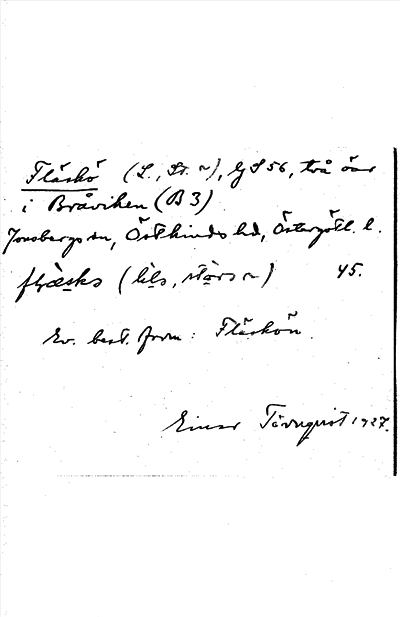 Fläskö (L., St. ~), GS 56, två öar
i Bråviken (B3)
Jonsbergs sn, Östkinds hd, Östergötl. l.
(lils, stors ~) 45.
Ev. best. form: Fläskön
Einar Törnqvist 1927.